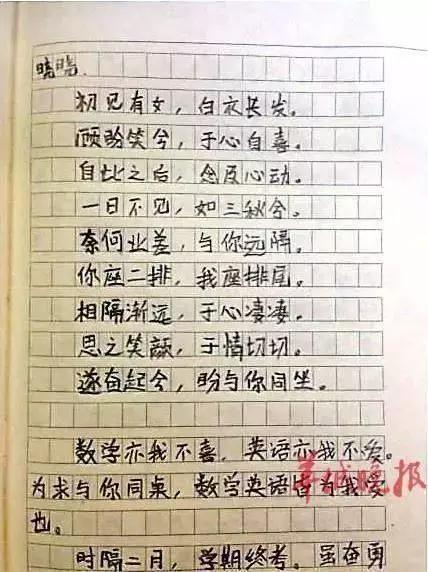 晓晓.
初见有女，白衣长发。
顾盼笑兮，于心自喜。
自此之后，念及心动。
一日不见，如三秋兮。
奈何业差，与你远隔。
你座二排，我座排尾。
相隔渐远，于心凄凄。
思之笑颜，于情切切。
遂奋起兮，盼与你同坐。
数学亦我不喜，英语亦我不爱。
羊城晚报
为求与你同桌，数学英语皆为我爱
也。
时隔二月，学期终考。虽奋勇